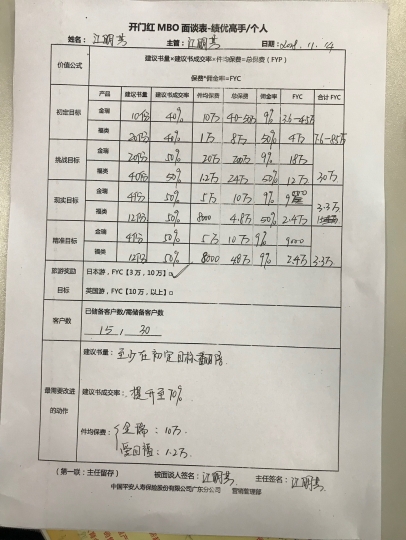 开门红 MBO 面谈表-绩优高手/个人
姓名： 主管： 日期：2018.11.14
价值公式
建议书量×建议书成交率×件均保费=总保费（FYP）
保费*佣金率=FYC
产品 建议书量 建议书成交率 件均保费 总保费 佣金率 FYC 合计 FYC
初定目标
金瑞 10份 40% 10万 40-50万 9% 3.6-4.5万
福类 20份 40% 1万 8万 50% 4万 7.6-8.5万
挑战目标
金瑞 20份 50% 20万 200万 9% 18万
福类 40份 50% 1.2万 24万 50% 12万 30万
现实目标
金瑞 4份 50% 5万 10万 9%
福类 12份 50% 8000 4.8万 50% 2.4万 3.3万
精准目标
金瑞 4份 50% 5万 10万 9% 9000
福类 12份 50% 8000 4.8万 9% 2.4万 3.3万
旅游奖励
目标
日本游，FYC【3 万，10 万】□ ✓
英国游，FYC【10 万，以上】□
客户数
已储备客户数/需储备客户数：
15 / 30
最需要改进
的动作
建议书量：至少在初定目标翻倍
建议书成交率：提升至70%
件均保费：金瑞：10万
1.2万
（第一联：主任留存） 被面谈人签名： 主任签名：
中国平安人寿保险股份有限公司广东分公司 营销管理部